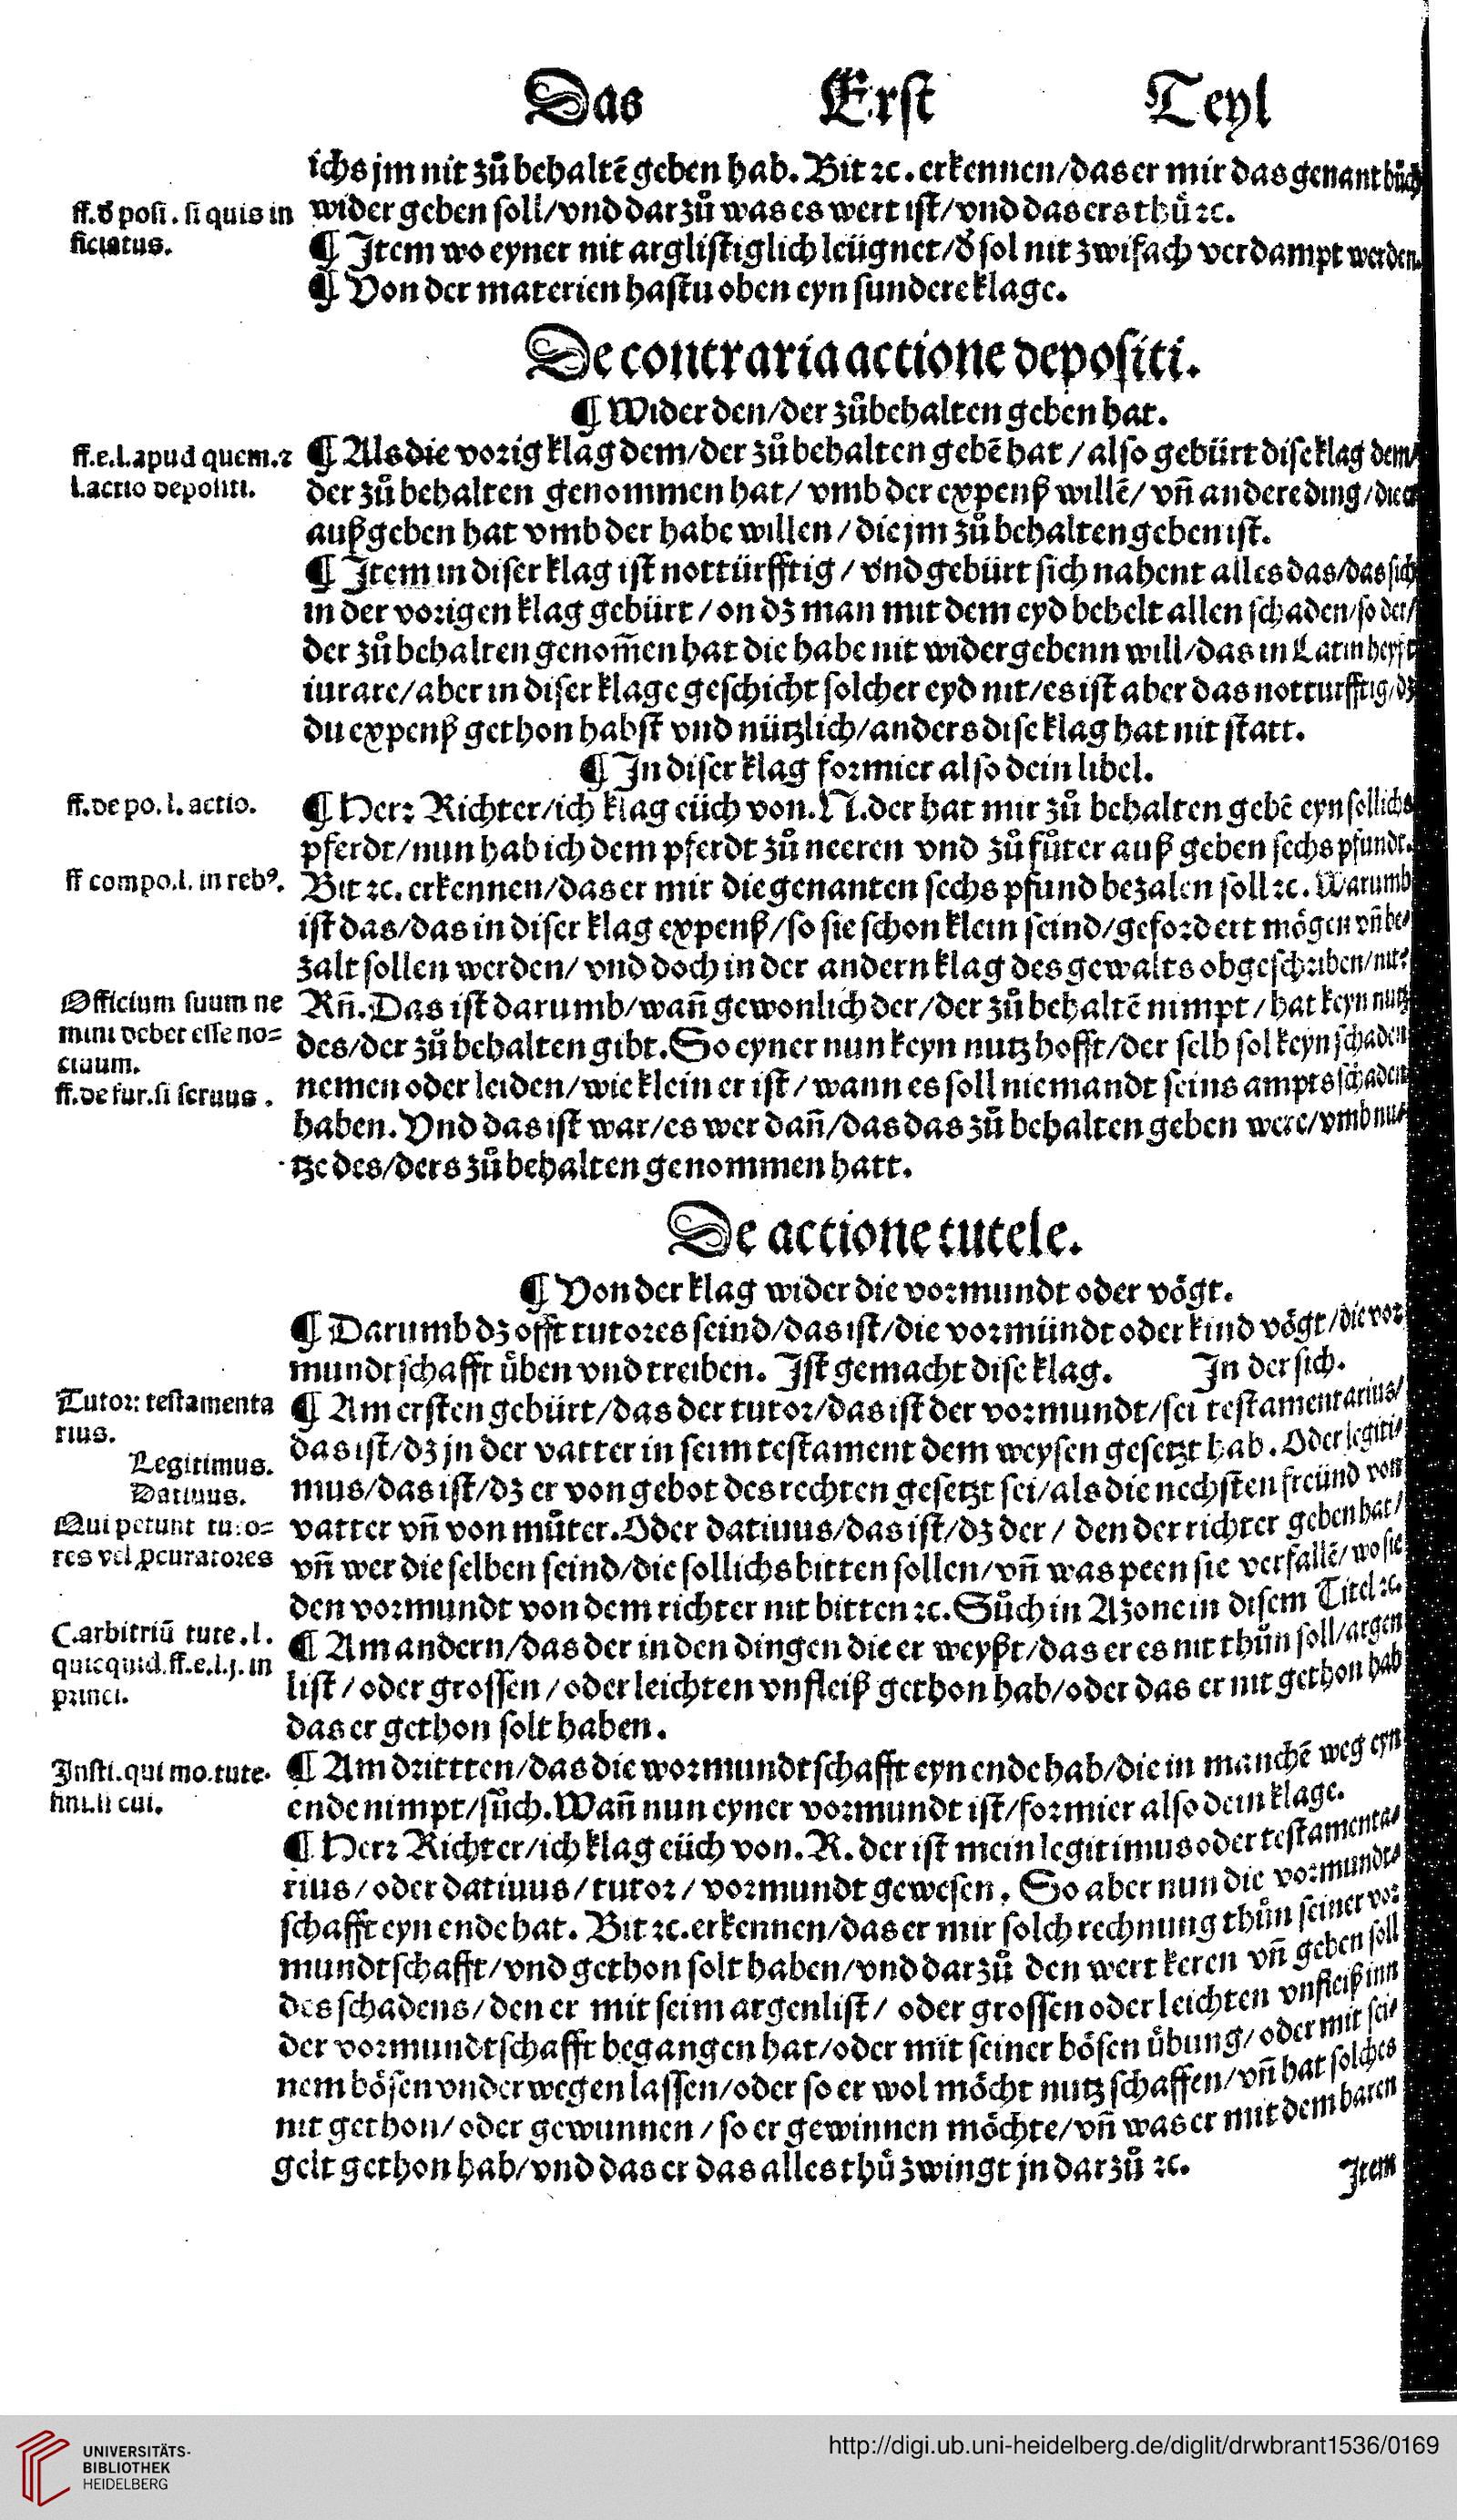 Das Erst Teyl
ichs jm nit zů behaltẽ geben hab. Bit ꝛc. erkennen/das er mir das genant bůch
wider geben soll/vnd dar zů was es wert ist/vnd das ers thů ꝛc.
¶ Item wo eyner nit arglistiglich leügnet/d' sol nit zwifach verdampt werden.
¶ Von der materien hastu oben eyn sundere klage.
ff. d' posi. si quis in
ficiatus.
De contraria actione depositi.
¶ Wider den/der zů behalten geben hat.
¶ Als die vorig klag dem/der zů behalten gebẽ hat / also gebürt dise klag dem/
der zů behalten genommen hat/ vmb der expenß willẽ/ vñ andere ding/die er
außgeben hat vmb der habe willen / die jm zů behalten geben ist.
ff.e.l.apud quem.⁊
l.actio depositi.
¶ Item in diser klag ist nottürfftig / vnd gebürt sich nahent alles das/das sich
in der vorigen klag gebürt / on dz man mit dem eyd behelt allen schaden/so der/
der zů behalten genom̃en hat die habe nit widergebenn will/das in Latin heyst
iurare/aber in diser klage geschicht solcher eyd nit/es ist aber das notturfftig/dz
du expenß gethon habst vnd nützlich/anders dise klag hat nit statt.
¶ In diser klag formier also dein libel.
¶ Herr Richter/ich klag eüch von. N. der hat mir zů behalten gebẽ eyn sollichs
pferdt/nun hab ich dem pferdt zů neeren vnd zů fůter auß geben sechs pfundt.
Bit ꝛc. erkennen/das er mir die genanten sechs pfund bezalen soll ꝛc. Warumb
ist das/das in diser klag expenß/so sie schon klein seind/gefordert mögen vñ be/
zalt sollen werden/ vnd doch in der andern klag des gewalts obgeschriben/nit?
Rñ. Das ist darumb/wañ gewonlich der/der zů behaltẽ nimpt / hat keyn nutz
des/der zů behalten gibt. So eyner nun keyn nutz hofft/der selb sol keyn schaden
nemen oder leiden/wie klein er ist / wann es soll niemandt seins ampts schaden
haben. Vnd das ist war/es wer dañ/das das zů behalten geben were/vmb nu/
tze des/ders zů behalten genommen hatt.
ff. de po. l. actio.
ff compo.l. in rebꝰ.
Officium suum ne
mini debet esse no=
ciuum.
ff. de fur. si seruus .
De actione tutele.
¶ Von der klag wider die vormundt oder vögt.
¶ Darumb dz offt tutores seind/das ist/die vormündt oder kind vögt/die vor
mundtschafft üben vnd treiben. Ist gemacht dise klag. In der sich.
¶ Am ersten gebürt/das der tutor/das ist der vormundt/sei testamentarius/
das ist/dz jn der vatter in seim testament dem weysen gesetzt hab. Oder legiti/
mus/das ist/dz er von gebot des rechten gesetzt sei/als die nechsten freünd von
vatter vñ von můter. Oder datiuus/das ist/dz der / den der richter geben hat/
vñ wer die selben seind/die sollichs bitten sollen/vñ was peen sie verfallẽ/wo sie
den vormundt von dem richter nit bitten ꝛc. Sůch in Azone in disem Titel ꝛc.
Tutor: testamenta
rius.
Legitimus.
Datiuus.
Qui petunt tuto=
res vel ꝓcuratores
¶ Am andern/das der in den dingen die er weyßt/das er es nit thůn soll/argen
list / oder grossen / oder leichten vnfleiß gethon hab/oder das er nit gethon hab
das er gethon solt haben.
C. arbitriũ tute. l.
quicquid. ff.e.l.j. in
princi.
¶ Am drittten/das die wormundtschafft eyn ende hab/die in manchẽ weg eyn
ende nimpt/sůch. Wañ nun eyner vormundt ist/formier also dein klage.
Insti. qui mo. tute.
fini. li cui.
¶ Herr Richter/ich klag eüch von. R. der ist mein legitimus oder testamenta/
rius/ oder datiuus / tutor / vormundt gewesen. So aber nun die vormundt/
schafft eyn ende hat. Bit ꝛc. erkennen/das er mir solch rechnung thůn seiner vor
mundtschafft/vnd gethon solt haben/vnd dar zů den wert keren vñ geben soll
des schadens/ den er mit seim argenlist/ oder grossen oder leichten vnfleiß inn
der vormundtschafft begangen hat/oder mit seiner bösen übung/ oder mit sei/
nem bösen vnderwegen lassen/oder so er wol möcht nutz schaffen/vñ hat solches
nit gethon/ oder gewunnen / so er gewinnen möchte/vñ was er mit dem baren
gelt gethon hab/vnd das er das alles thů zwingt jn dar zů ꝛc.
Item
UNIVERSITÄTS-
BIBLIOTHEK
HEIDELBERG
http://digi.ub.uni-heidelberg.de/diglit/drwbrant1536/0169